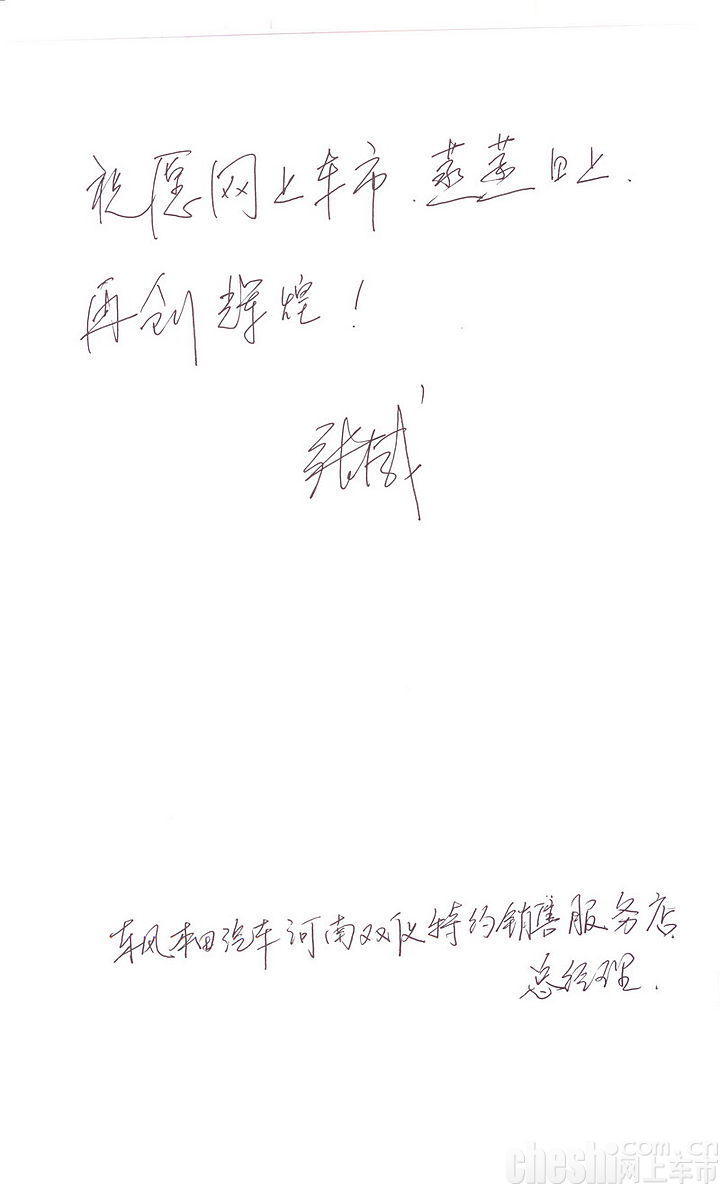 祝愿网上车市.蒸蒸日上.
再创辉煌!
张
东风本田汽车河南双仪特约销售服务店
总经理.
cheshi.com.cn
网上车市